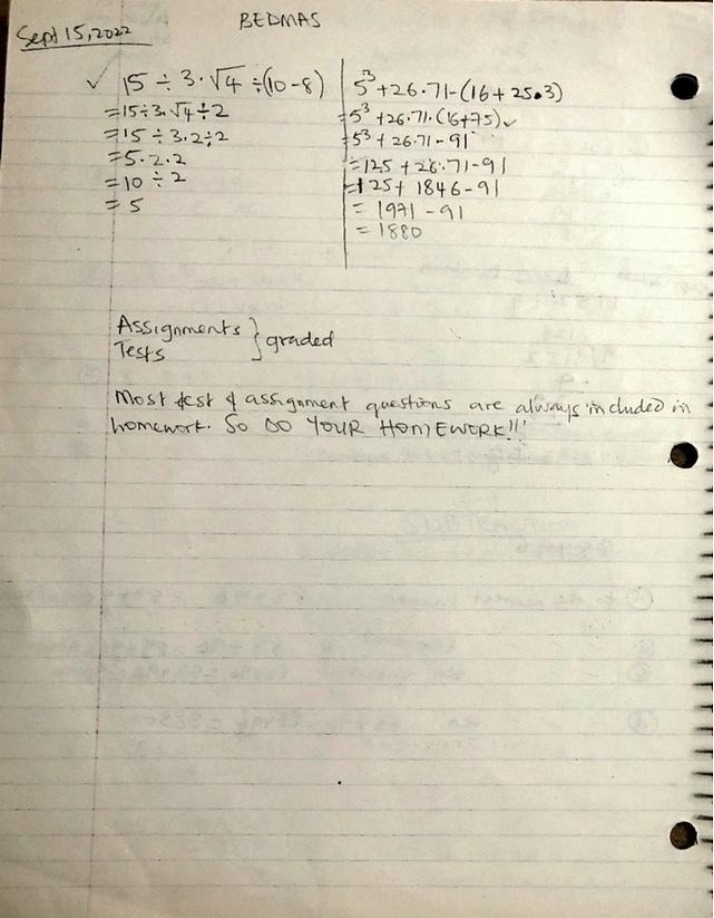 Sept 15, 2022
BEDMAS
✓ 15 ÷ 3 · √4 ÷ (10-8)
= 15 ÷ 3 · √4 ÷ 2
= 15 ÷ 3 · 2 ÷ 2
= 5 · 2 · 2
= 10 ÷ 2
= 5
5³ + 26 · 71 - (16 + 25 · 3)
= 5³ + 26 · 71 · (16+75) ✓
= 5³ + 26 · 71 - 91
= 125 + 26 · 71 - 91
= 125 + 1846 - 91
= 1971 - 91
= 1880
Assignments
Tests } graded
Most test & assignment questions are always included in
homework. So DO YOUR HOMEWORK!!!